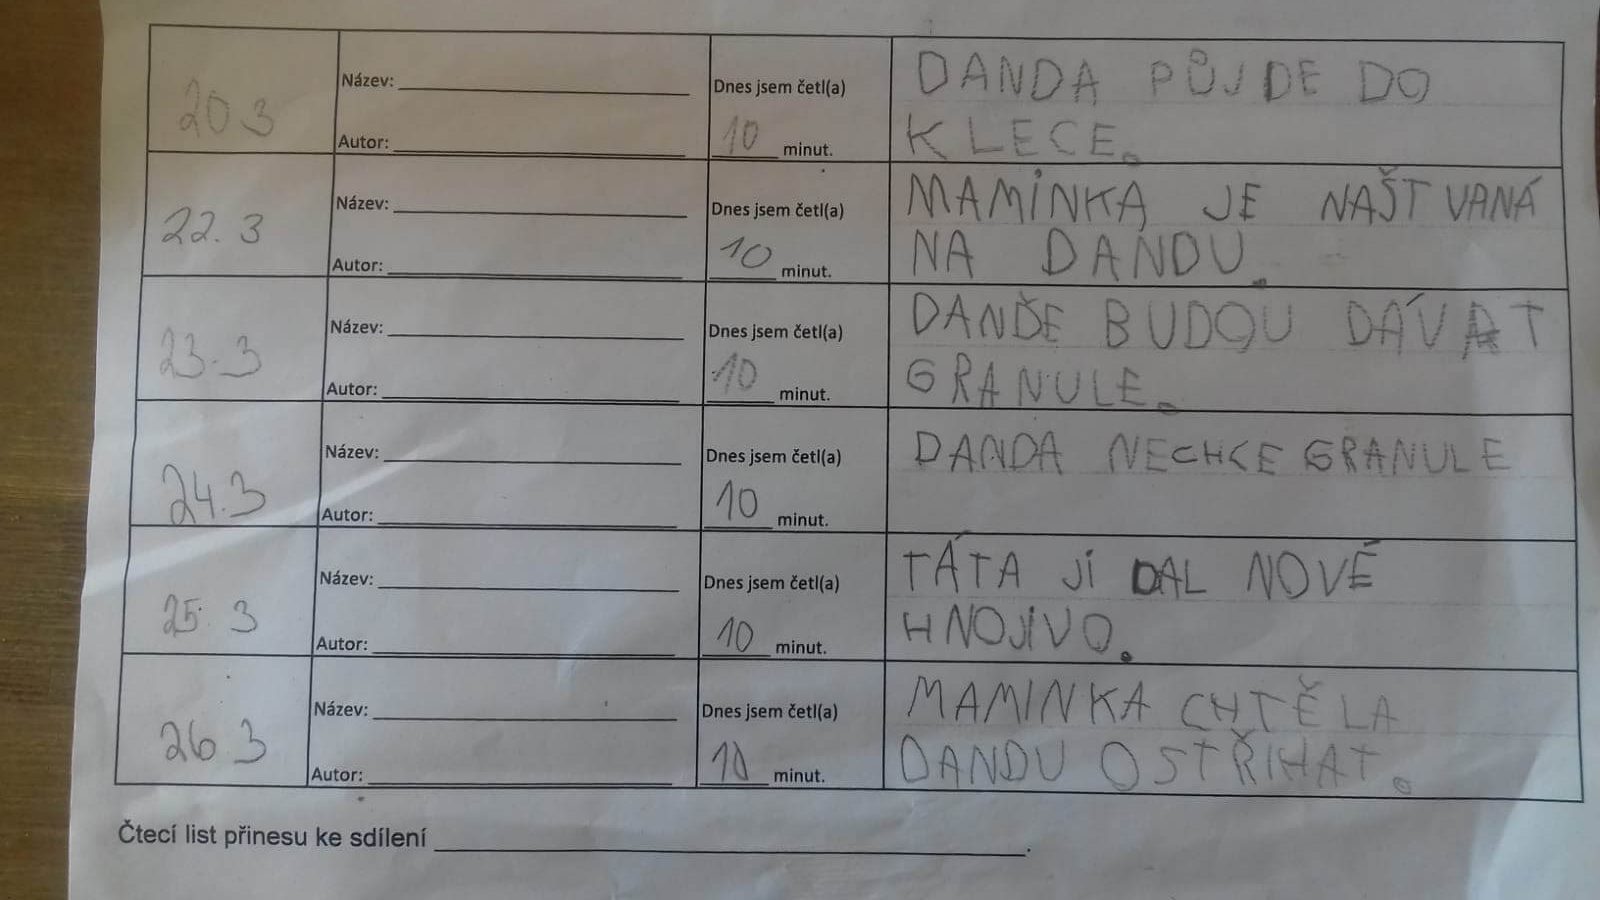 20 3 Název: Dnes jsem četl(a) DANDA PŮJDE DO
Autor: 10 minut. KLECE.
22. 3 Název: Dnes jsem četl(a) MAMINKA JE NAŠTVANÁ
Autor: 10 minut. NA DANDU.
23. 3 Název: Dnes jsem četl(a) DANĎE BUDOU DÁVAT
Autor: 10 minut. GRANULE.
24. 3 Název: Dnes jsem četl(a) DANDA NECHCE GRANULE
Autor: 10 minut.
25. 3 Název: Dnes jsem četl(a) TÁTA JÍ DAL NOVÉ
Autor: 10 minut. HNOJIVO.
26 3 Název: Dnes jsem četl(a) MAMINKA CHTĚLA
Autor: 10 minut. DANDU OSTŘIHAT.
Čtecí list přinesu ke sdílení .